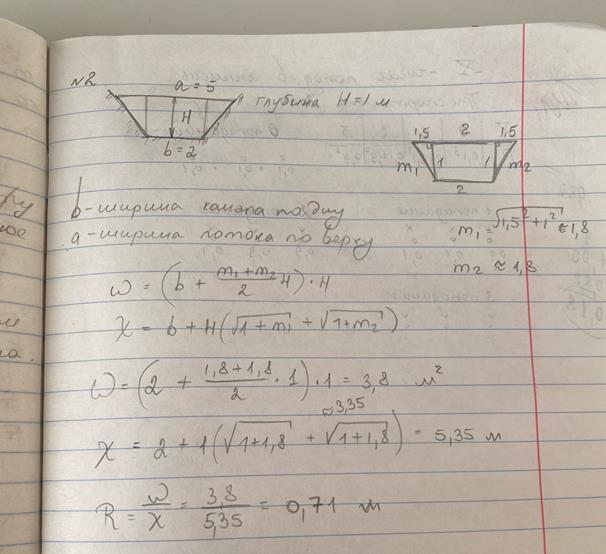 №2
a = 5
H
b = 2
глубина H = 1 м
1,5 2 1,5
m₁ 1 1 m₂
2
b - ширина канала по дну
a - ширина потока по верху
m₁ = √1,5² + 1² ≈ 1,8
m₂ ≈ 1,8
ω = (b + m₁ + m₂ / 2 H) · H
χ = b + H(√1 + m₁ + √1 + m₂)
ω = (2 + 1,8 + 1,8 / 2 · 1) · 1 = 3,8 м²
≈ 3,35
χ = 2 + 1(√1+1,8 + √1+1,8) = 5,35 м
R = ω / χ = 3,8 / 5,35 = 0,71 м